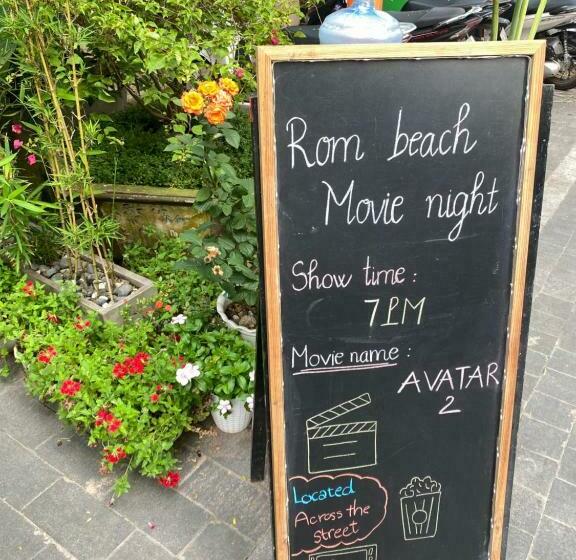 Rom beach
Movie night
Show time :
7PM
Movie name :
AVATAR
2
Located
Across the
street